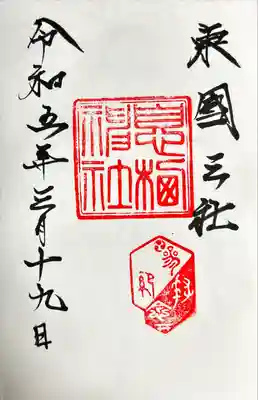 東國三社
息栖
神社
令和五年三月十九日